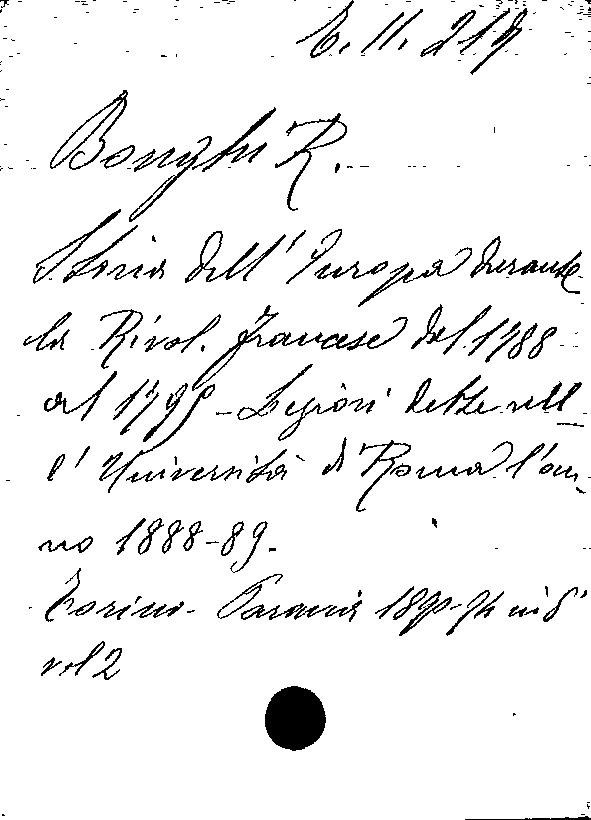 E. 11. 219
Bonghi R.
Storia dell'Europa durante
la Rivol. francese dal 1788
al 1795 - Lezioni dette nell
l'Università di Roma l'an-
no 1888-89.
Torino - Paravia 1890-94 in 8°
vol 2